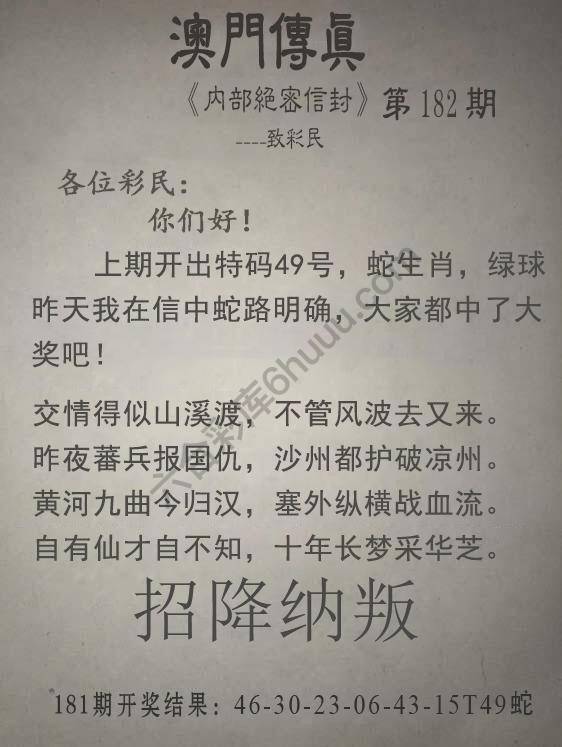 澳門傳真
《内部絕密信封》第182期
----致彩民
各位彩民：
你们好！
上期开出特码49号，蛇生肖，绿球
昨天我在信中蛇路明确，大家都中了大
奖吧！
交情得似山溪渡，不管风波去又来。
昨夜蕃兵报国仇，沙州都护破凉州。
黄河九曲今归汉，塞外纵横战血流。
自有仙才自不知，十年长梦采华芝。
招降纳叛
181期开奖结果：46-30-23-06-43-15T49蛇
六合彩库6huuu.com